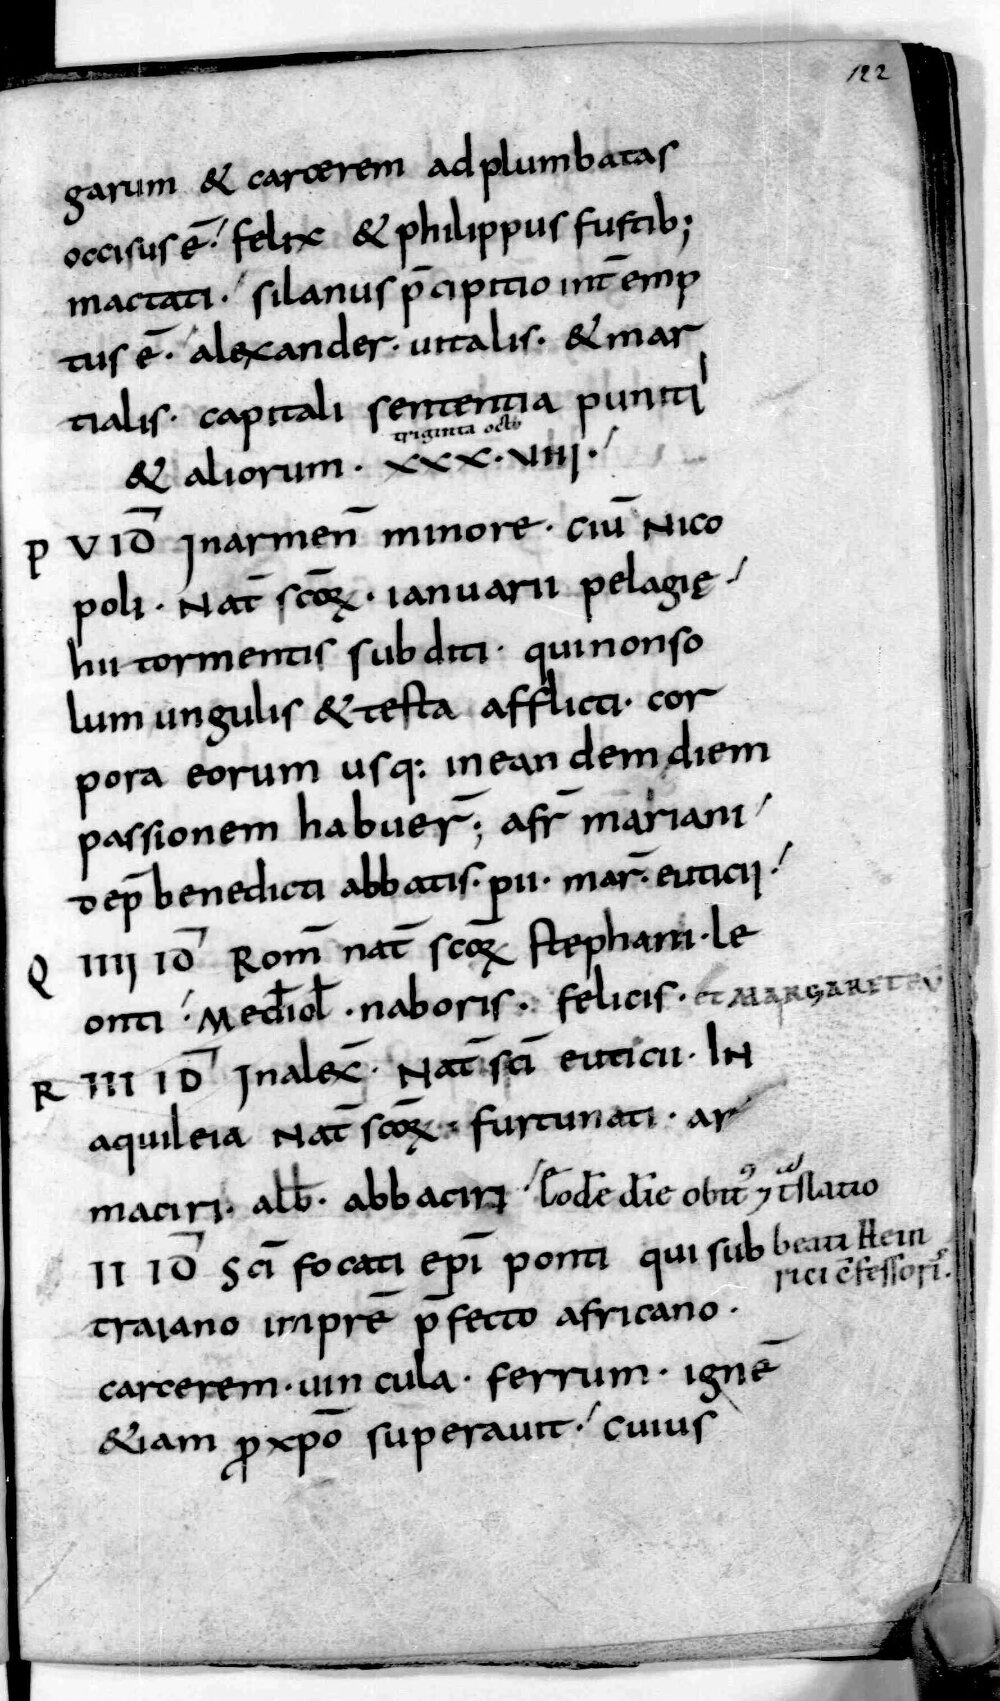 122
garum & carcerem adplumbatas
occisus ē. felix & philippus fustib;
mactati. silanus p̄cipitio int̄emp
tus ē. alexander. uitalis. & mar
tialis. capitali sententia puniti
triginta octo
& aliorum. xxx. viiii.
P V ID̄ Inarmen̄ minore. ciū Nico
poli. Nat̄ scōꝝ. ianuarii pelagię.
hii tormentis subditi. quinonso
lum ungulis & testa afflicti. cor
pora eorum usq: ineandem diem
passionem habuer̄; afr̄ mariani
dep̄ benedicti abbatis. pii. mar̄. euticii.
Q IIII ID̄ Rom̄ nat̄ scōꝝ stephani. le
onti. Mediol̄. naboris. felicis. et MARGARETE V
R III ID̄ Inalex̄. Nat̄ scī euticii. IN
aquileia Nat̄ scōꝝ. furtunati. ar
maciri. alb̄. abbaciri
eod̄e die obit⁹ ⁊ t̄slatio
beati Hein
rici c̄fessoris.
II ID̄ Scī focati epī ponti qui sub
traiano imprē p̄fecto africano.
carcerem. uincula. ferrum. ignē
&iam ꝓ xpō superauit. cuius